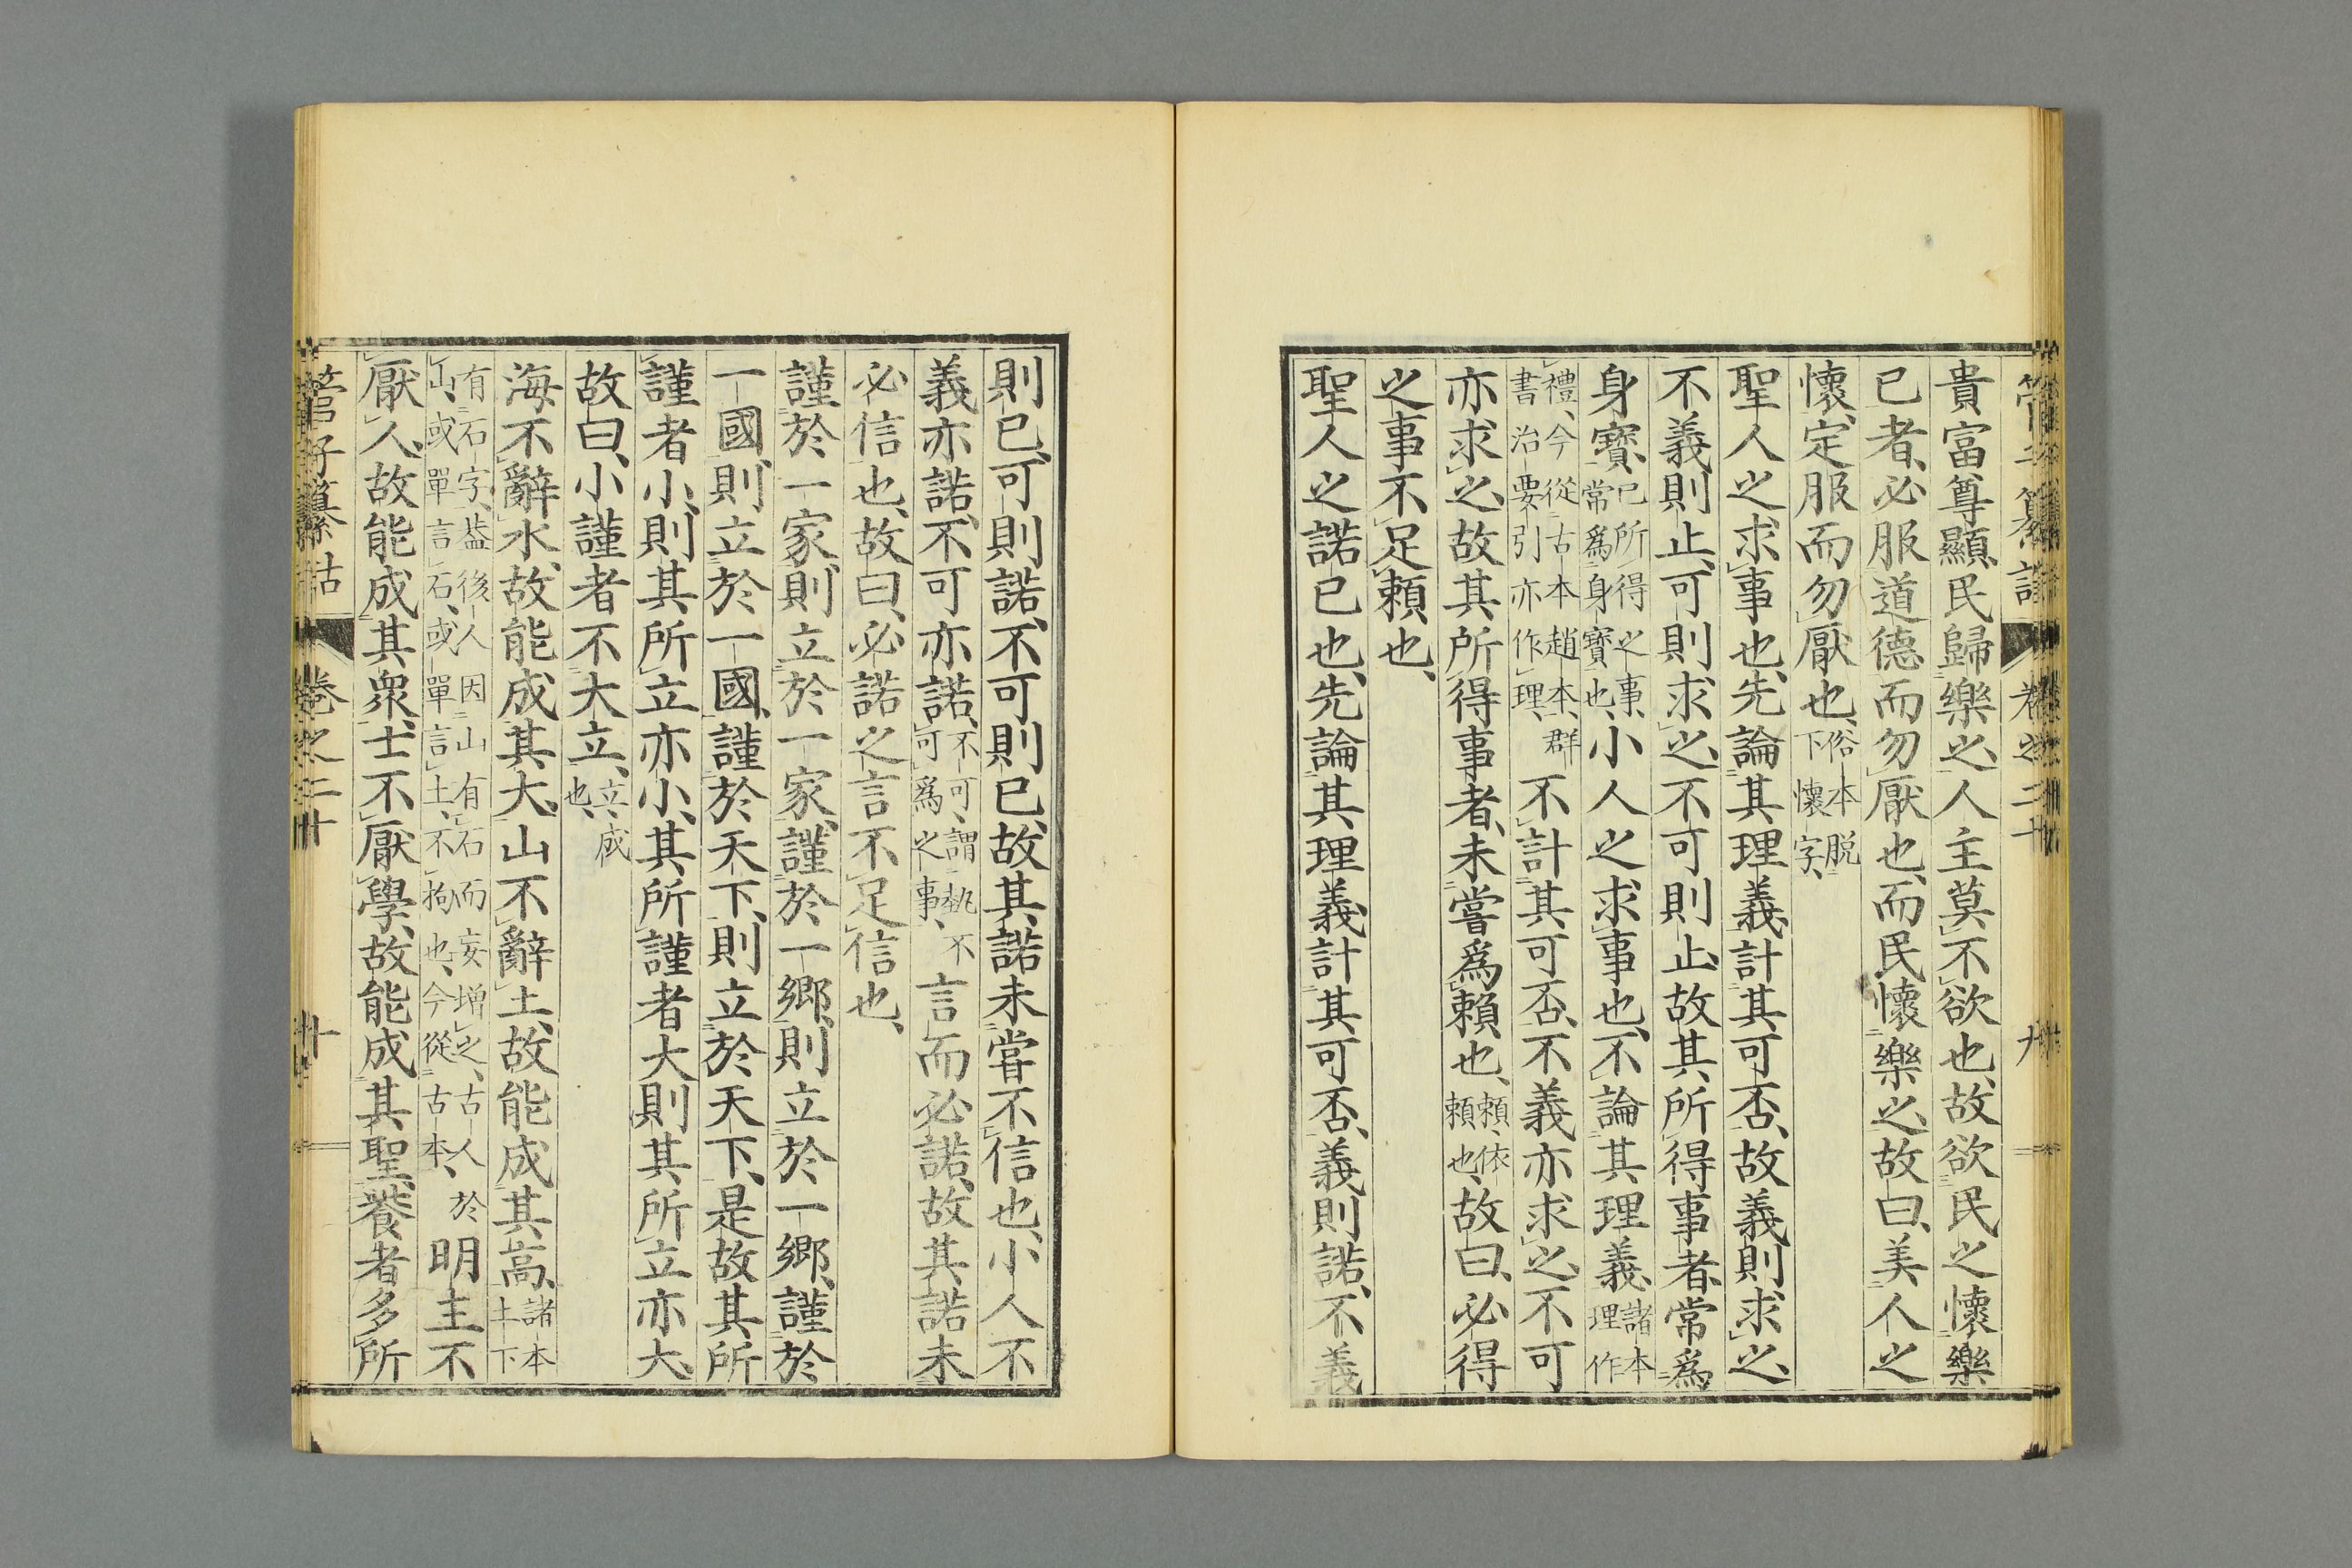 貴富尊顯、民歸樂之、人主莫不欲也、故欲民之懷樂
己者、必服道德而勿厭也、而民懷樂之、故曰、美人之
懷、定服而勿厭也、俗本脱下懷字、
聖人之求事也、先論其理義、計其可否、故義則求之、
不義則止、可則求之、不可則止、故其所得事者、常爲
身寶、己所得之事、常爲身寶也、小人之求事也、不論其理義、諸本理作
禮、今從古本趙本、群書治要引亦作理、不計其可否、不義亦求之、不可
亦求之、故其所得事者、未嘗爲賴也、賴、依賴也、故曰、必得
之事、不足賴也、
聖人之諾已也、先論其理義、計其可否、義則諾、不義
管子纂詁 卷之二十 九
則已、可則諾、不可則已、故其諾未嘗不信也、小人不
義亦諾、不可亦諾、不可、謂執不可爲之事、言而必諾、故其諾未
必信也、故曰、必諾之言、不足信也、
謹於一家、則立於一家、謹於一鄉、則立於一鄉、謹於
一國、則立於一國、謹於天下、則立於天下、是故其所
謹者小、則其所立亦小、其所謹者大、則其所立亦大、
故曰、小謹者不大立、立、成也、
海不辭水、故能成其大、山不辭土、故能成其高、諸本土下
有石字、蓋後人因山有石而妄增之、古人於山、或單言石、或單言土、不拘也、今從古本、明主不
厭人、故能成其衆、士不厭學、故能成其聖、養者多所
管子纂詁 卷之二十 十